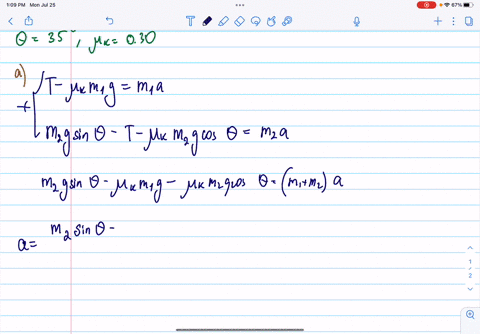 1:09 PM Mon Jul 25
67%
θ = 35°, μk = 0.30
a)
T - μk m1 g = m1 a
+
m2 g sin θ - T - μk m2 g cos θ = m2 a
m2 g sin θ - μk m1 g - μk m2 g cos θ = (m1+m2) a
a = m2 sin θ -
1
2